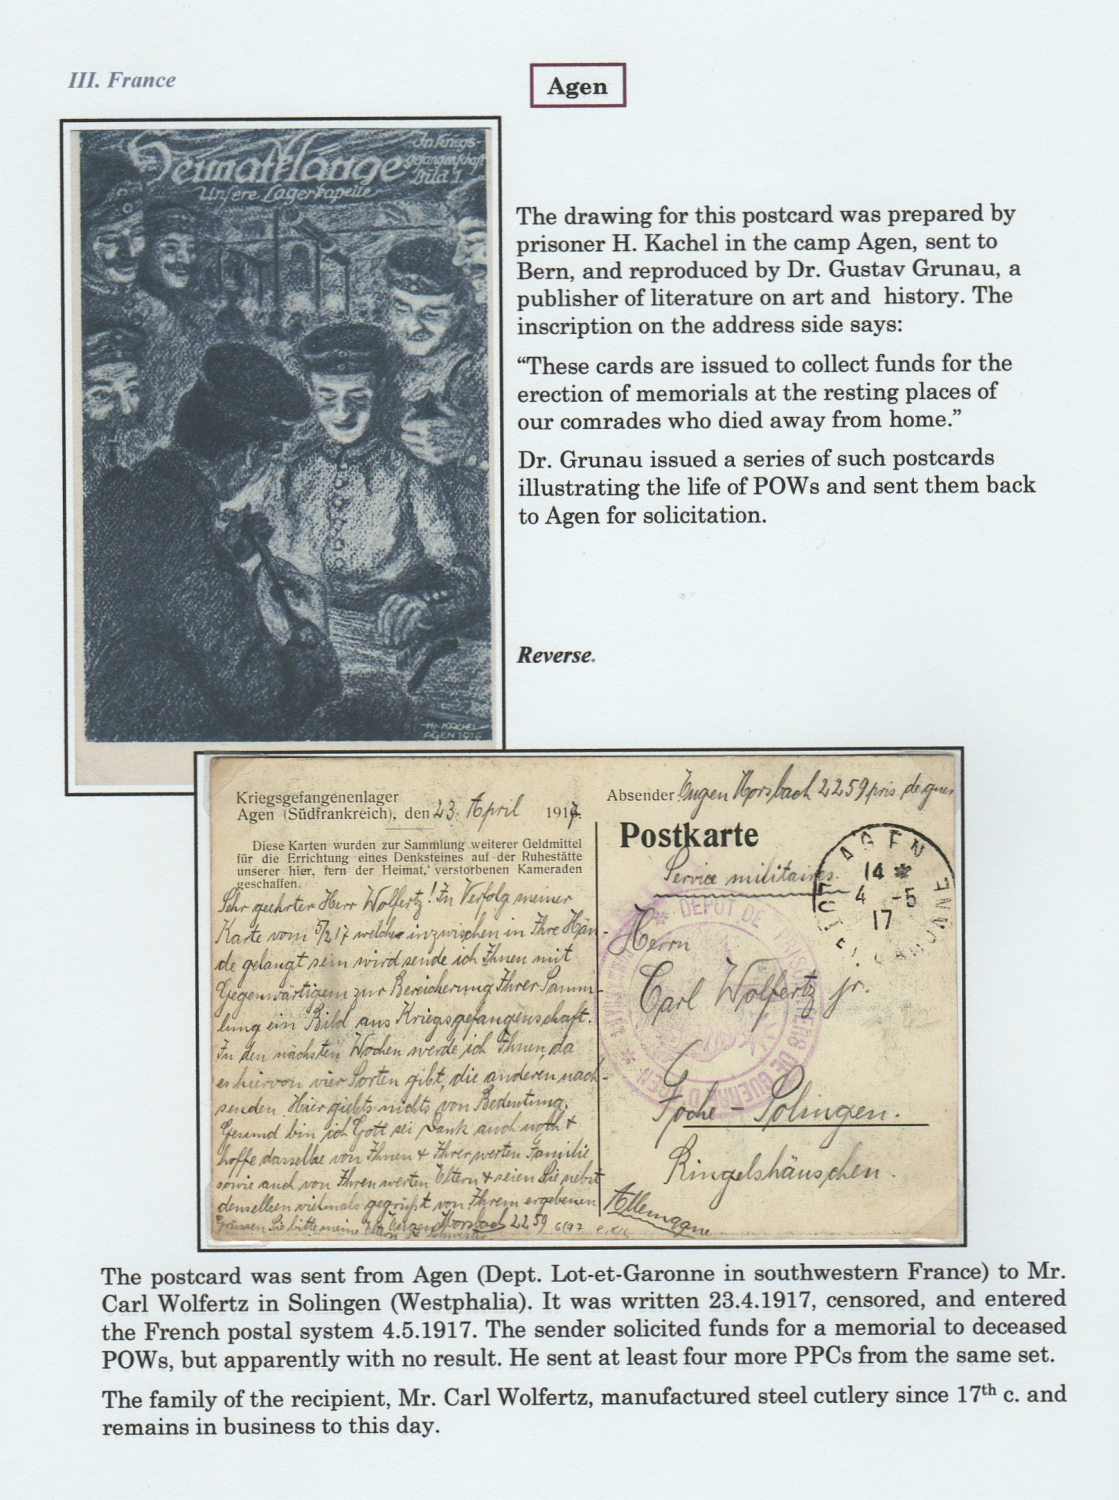 III. France
Agen
Heimatklänge
In Kriegs-
gefangenschaft
Bild 1.
Unsere Lagerkapelle
H. KACHEL
AGEN 1916
The drawing for this postcard was prepared by
prisoner H. Kachel in the camp Agen, sent to
Bern, and reproduced by Dr. Gustav Grunau, a
publisher of literature on art and history. The
inscription on the address side says:
“These cards are issued to collect funds for the
erection of memorials at the resting places of
our comrades who died away from home.”
Dr. Grunau issued a series of such postcards
illustrating the life of POWs and sent them back
to Agen for solicitation.
Reverse.
Kriegsgefangenenlager
Agen (Südfrankreich), den 23. April 1917.
Diese Karten wurden zur Sammlung weiterer Geldmittel
für die Errichtung eines Denksteines auf der Ruhestätte
unserer hier, fern der Heimat, verstorbenen Kameraden
geschaffen.
Sehr geehrter Herr Wolfertz! In Verfolg meiner
Karte vom 5/2 17 welche inzwischen in Ihre Hän-
de gelangt sein wird sende ich Ihnen mit
Gegenwärtigem zur Bereicherung Ihrer Samm-
lung ein Bild aus Kriegsgefangenschaft.
In den nächsten Wochen werde ich Ihnen, da
es hiervon vier Sorten gibt, die anderen nach-
senden. Hier giebts nichts von Bedeutung.
Gesund bin ich Gott sei Dank auch noch +
hoffe dasselbe von Ihnen + Ihrer werten Familie
sowie auch von Ihren werten Eltern + seien Sie nebst
denselben vielmals gegrüßt von Ihrem ergebenen
Grüssen Sie bitte meine Eugen Morsbach 2259
Absender Eugen Morsbach 2259 pris. de guer
Postkarte
Service militaires.
AGEN
14 *
4 -5
17
LOT ET GARONNE
* DEPOT DE PRISONNIERS DE GUERRE D'AGEN *
Herrn
Carl Wolfertz jr.
Foche-Solingen.
Ringelshäuschen.
Allemagne
The postcard was sent from Agen (Dept. Lot-et-Garonne in southwestern France) to Mr.
Carl Wolfertz in Solingen (Westphalia). It was written 23.4.1917, censored, and entered
the French postal system 4.5.1917. The sender solicited funds for a memorial to deceased
POWs, but apparently with no result. He sent at least four more PPCs from the same set.
The family of the recipient, Mr. Carl Wolfertz, manufactured steel cutlery since 17th c. and
remains in business to this day.